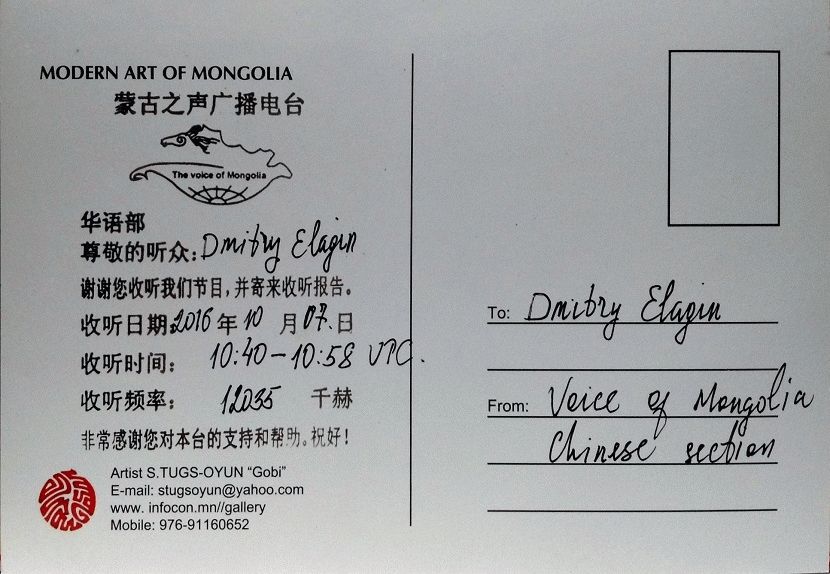 MODERN ART OF MONGOLIA
蒙古之声广播电台
The voice of Mongolia
华语部
尊敬的听众: Dmitry Elagin
谢谢您收听我们节目,并寄来收听报告。
收听日期: 2016 年 10 月 07. 日
收听时间: 10:40-10:58 UTC.
收听频率: 12035 千赫
非常感谢您对本台的支持和帮助。祝好!
Artist S.TUGS-OYUN "Gobi"
E-mail: stugsoyun@yahoo.com
www. infocon.mn//gallery
Mobile: 976-91160652
To: Dmitry Elagin
From: Voice of Mongolia
Chinese section